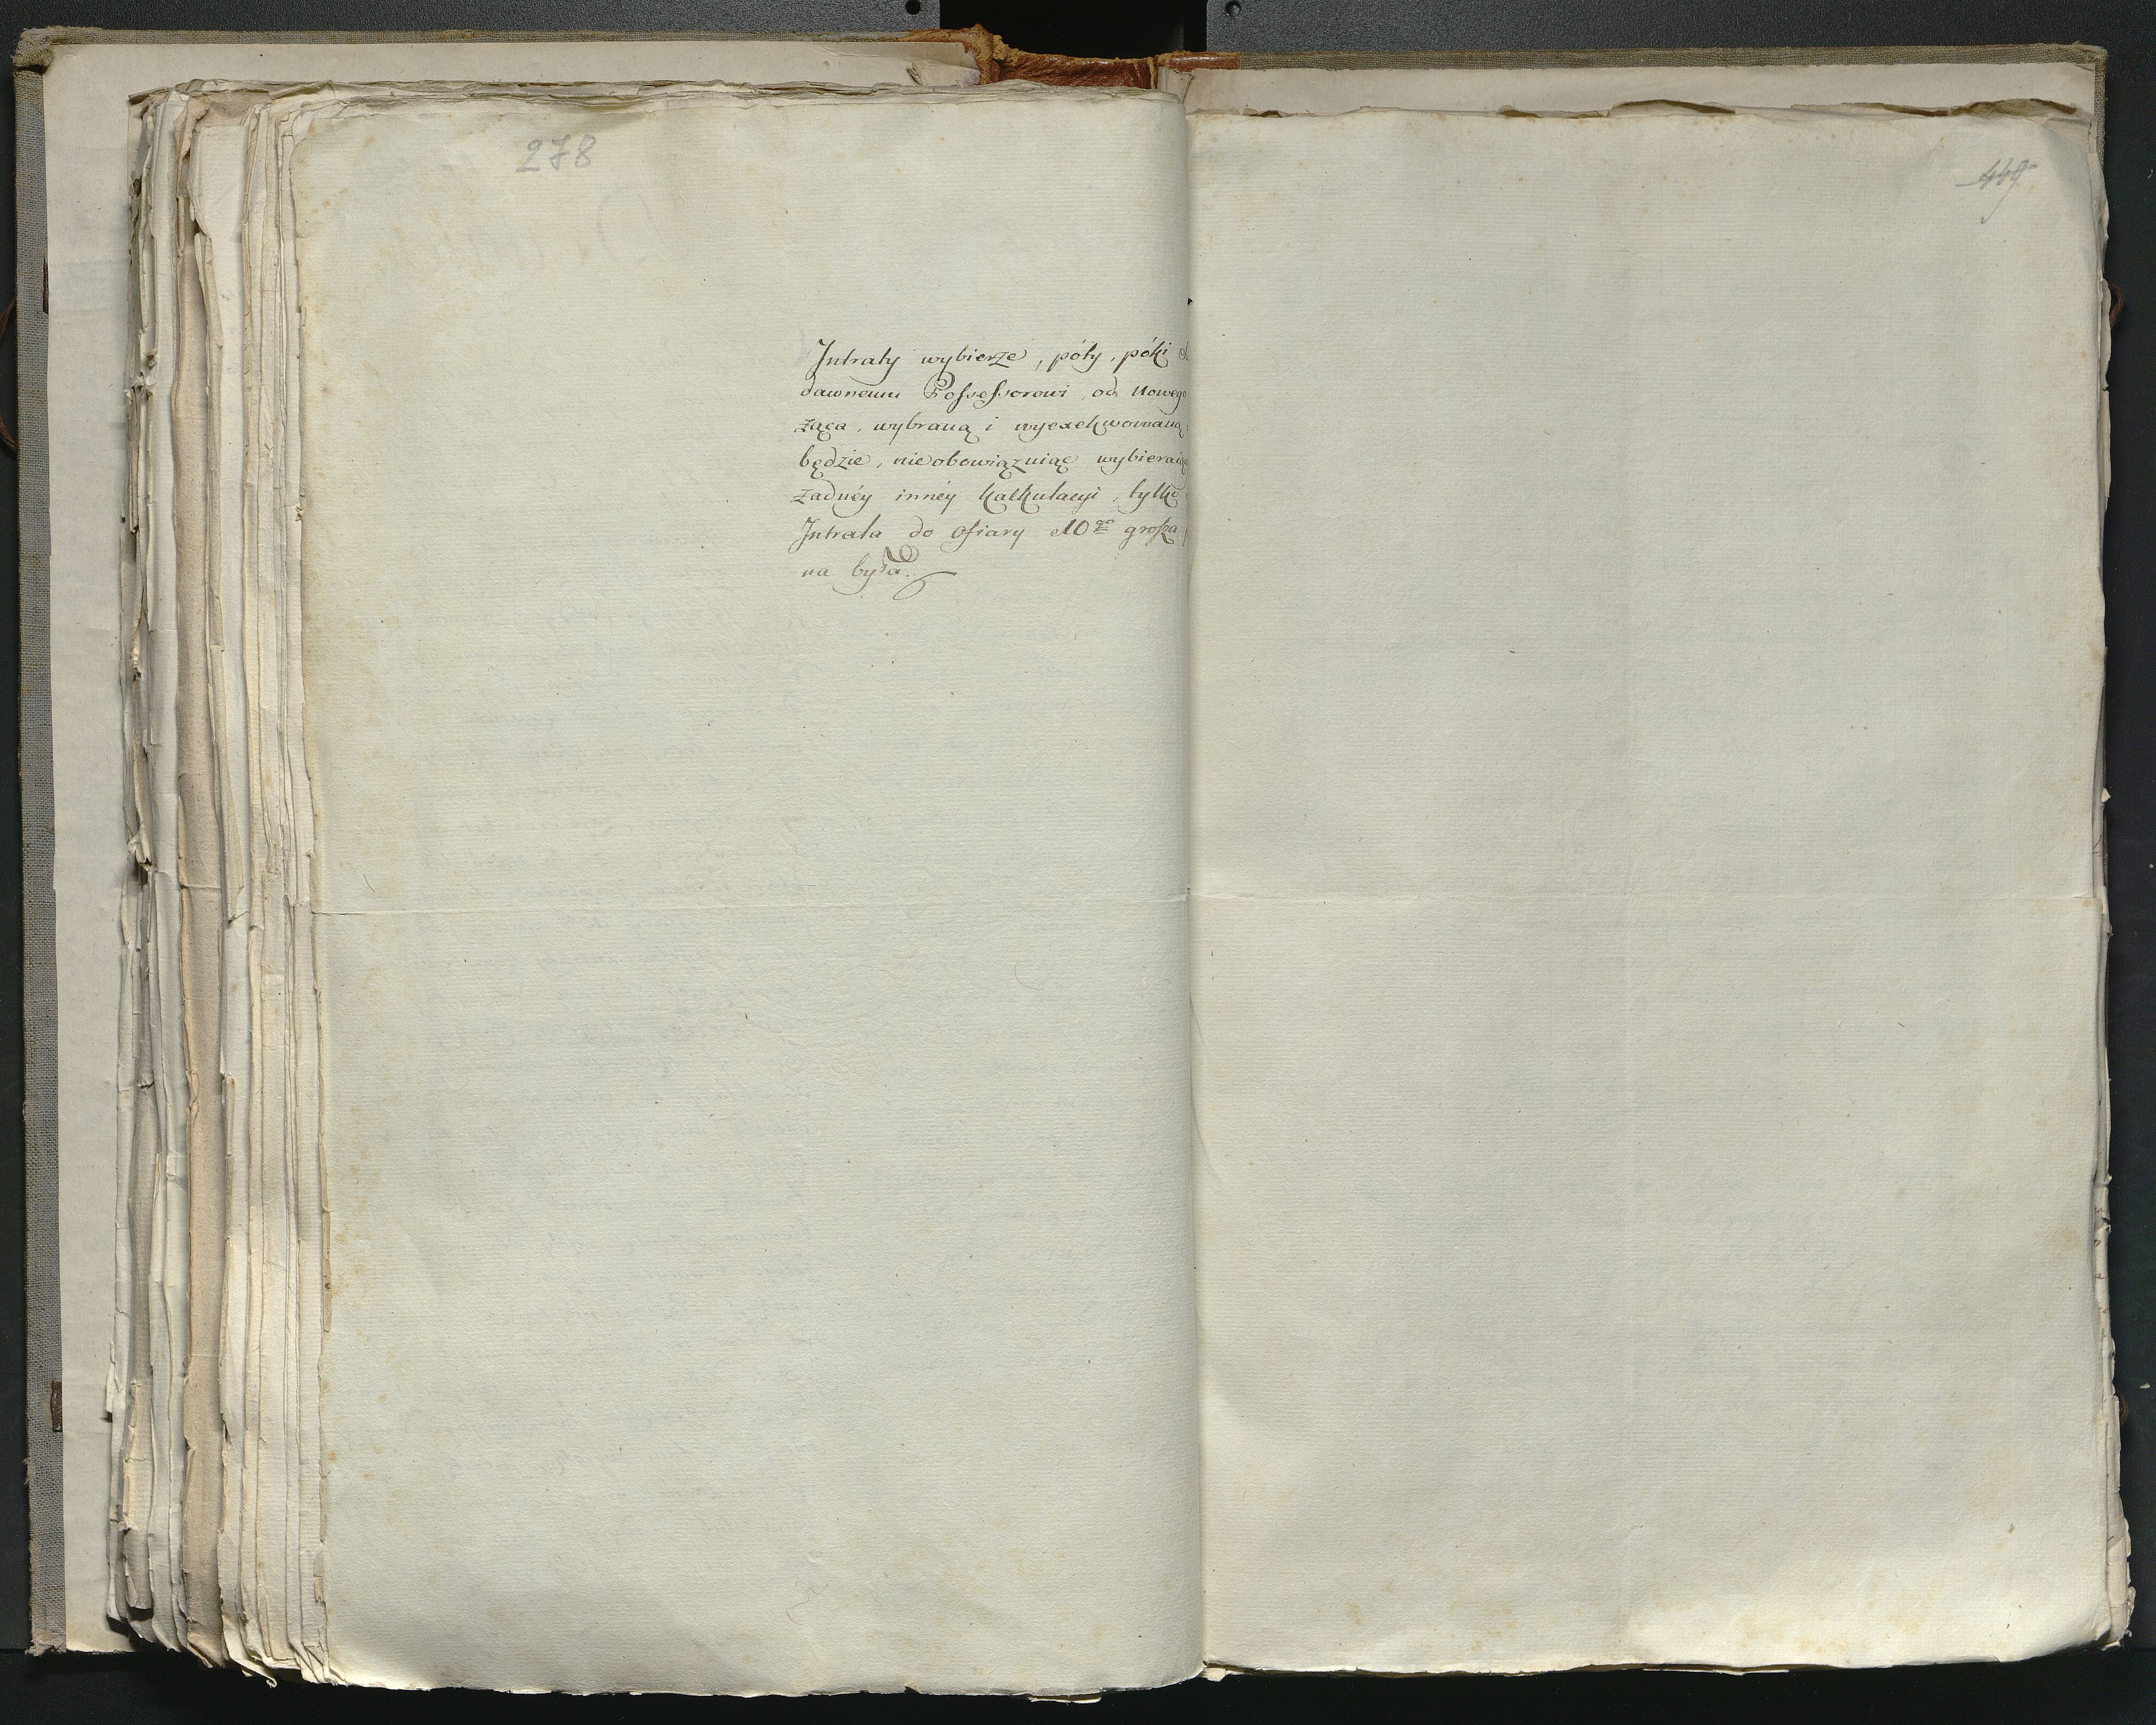 278
449
Intraty wybierze, póty, póki
dawnemu Possessorowi, od Nowego
ząca, wybraną i wyexekwowaną
będzie, nieobowiązuiąc wybieraią
żadnéy innéy kalkulacyi, tylko
Intrata do ofiary 10go grosza
na była.